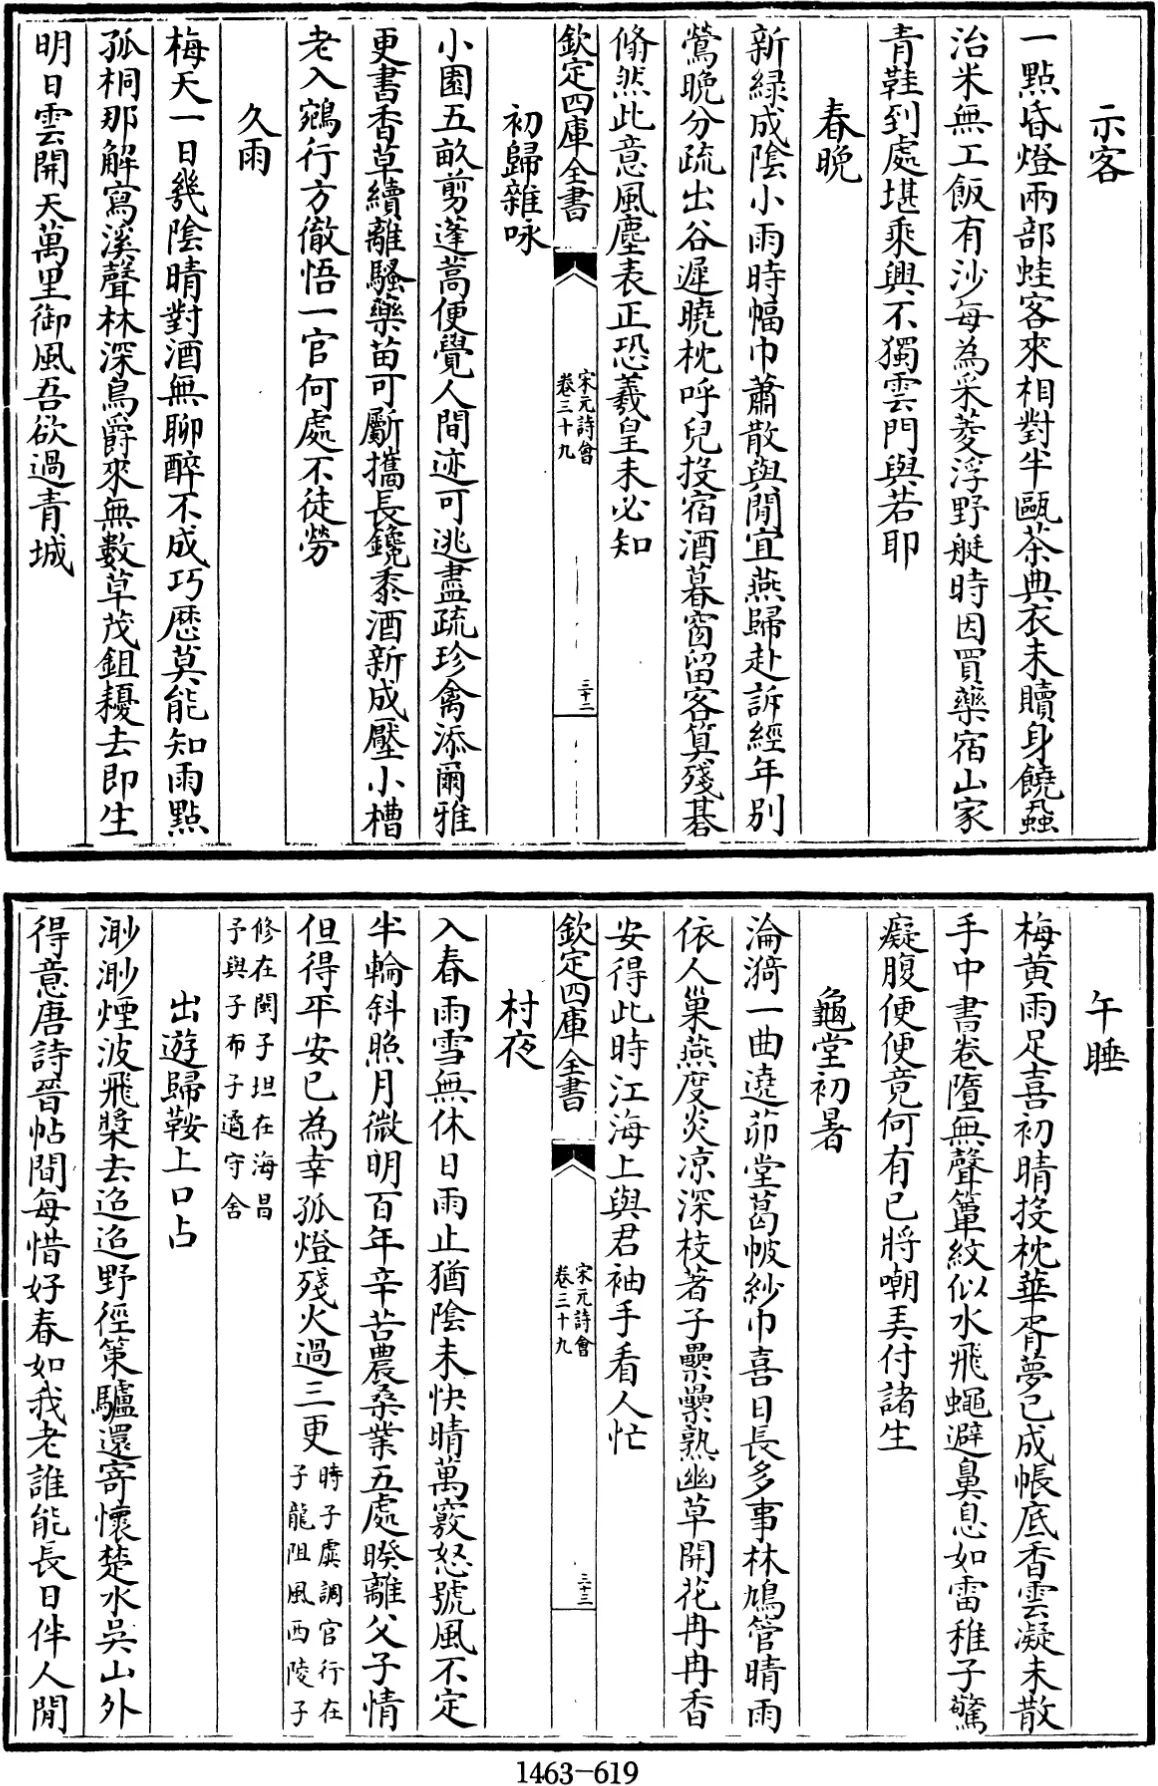 示客
一點昏燈兩部蛙客來相對半甌茶典衣未贖身饒蝨
治米無工飯有沙每為采菱浮野艇時因買藥宿山家
青鞋到處堪乘興不獨雲門與若耶
春晚
新緑成陰小雨時幅巾蕭散與閒宜燕歸赴訴經年别
鶯晚分疏出谷遲曉枕呼兒投宿酒暮窗留客算殘棊
翛然此意風塵表正恐羲皇未必知
欽定四庫全書
宋元詩會
卷三十九
三十二
初歸雜咏
小園五畝剪蓬蒿便覺人間迹可逃盡疏珍禽添爾雅
更書香草續離騷藥苗可斸攜長鑱黍酒新成壓小槽
老入鵷行方徹悟一官何處不徒勞
久雨
梅天一日幾陰晴對酒無聊醉不成巧厯莫能知雨點
孤桐那解寫溪聲林深鳥爵來無數草茂鉏耰去即生
明日雲開天萬里御風吾欲過青城
午睡
梅黄雨足喜初晴投枕華胥夢已成帳底香雲凝未散
手中書卷墮無聲簟紋似水飛蠅避鼻息如雷稚子驚
癡腹便便竟何有已將嘲美付諸生
龜堂初暑
淪漪一曲遶茆堂葛帔紗巾喜日長多事林鳩管晴雨
依人巢燕度炎凉深枝著子纍纍熟幽草開花冉冉香
安得此時江海上與君袖手看人忙
欽定四庫全書
宋元詩會
卷三十九
三十三
村夜
入春雨雪無休日雨止猶陰未快晴萬竅怒號風不定
半輪斜照月微明百年辛苦農桑業五處暌離父子情
但得平安已為幸孤燈殘火過三更
時子虡調官行在
子龍阻風西陵子
修在閩子坦在海昌
予與子布子遹守舍
出遊歸鞍上口占
渺渺煙波飛槳去迢迢野徑策驢還寄懷楚水吳山外
得意唐詩晉帖間每惜好春如我老誰能長日伴人閒
1463-619